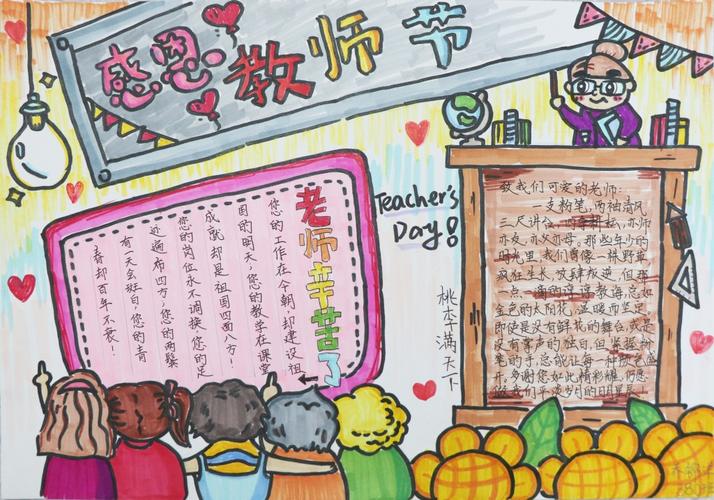 感恩教师节
老师辛苦了
您的工作在今朝,却建设祖
国的明天;您的教学在课堂
成就却是祖国四面八方!
您的岗位永不调换,您的足
迹遍布四方;您的两鬓
有一天会斑白,您的青
春却百年不衰!
Teacher's
Day!
桃李满天下
致我们可爱的老师:
一支粉笔,两袖清风
三尺讲台,四季耕耘,亦师
亦友,亦父亦母,那些年少的
时光里,我们肖像一株野草
疯狂生长,放肆成
但那
一点一滴的谆谆教诲,宛如
金色的太阳花,温暖而坚定,
即使是没有鲜花的舞台,或是
没有掌声的独白,但坚握粉
笔的手,总能让每一种颜色盛
开,多谢您如此精彩耀眼
做我们平淡岁月的日月星辰